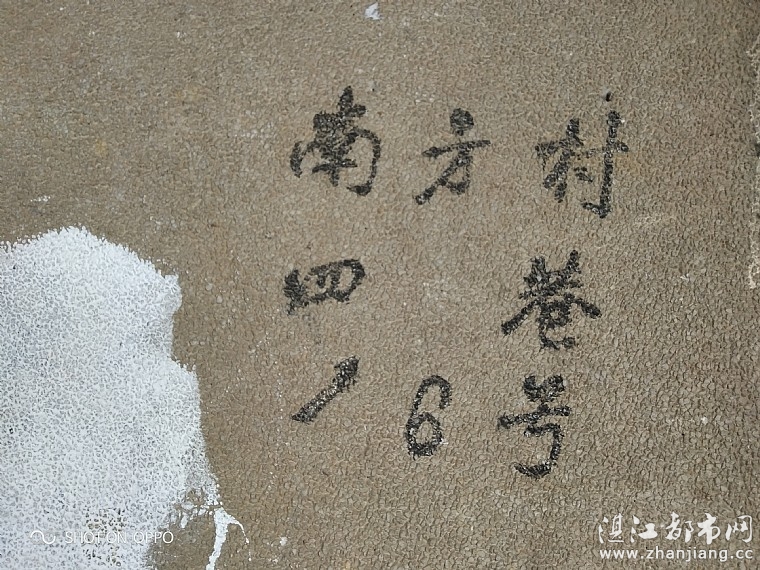 南方村
四 巷
16号
SHOT ON OPPO
湛江都市网
www.zhanjiang.cc